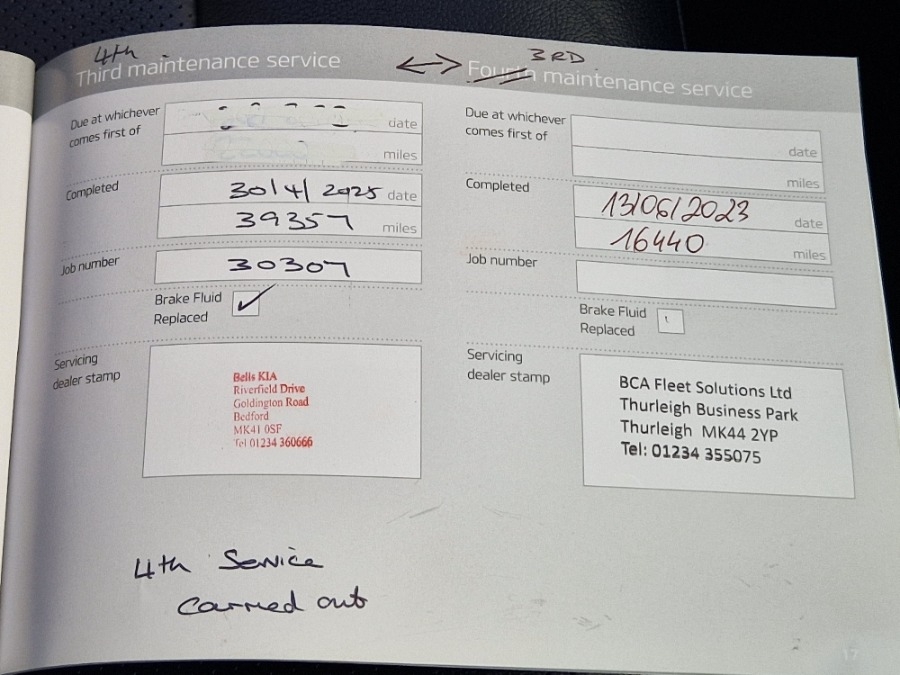 4th
Third maintenance service
Due at whichever
comes first of
date
miles
Completed
30/4/2025 date
39357 miles
Job number
30307
Brake Fluid
Replaced
Servicing
dealer stamp
Bells KIA
Riverfield Drive
Goldington Road
Bedford
MK41 0SF
Tel 01234 360666
4th Service
carried out
3RD
Fourth maintenance service
Due at whichever
comes first of
date
miles
Completed
13/06/2023 date
16440 miles
Job number
Brake Fluid
Replaced
Servicing
dealer stamp
BCA Fleet Solutions Ltd
Thurleigh Business Park
Thurleigh MK44 2YP
Tel: 01234 355075
17